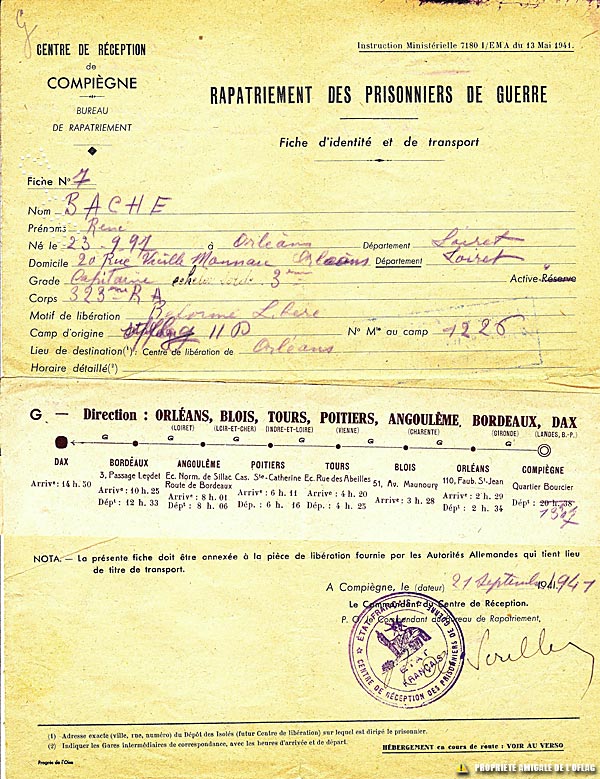 G
CENTRE DE RÉCEPTION
de
COMPIÈGNE
BUREAU
DE RAPATRIEMENT
Instruction Ministérielle 7180 I/EMA du 13 Mai 1941.
RAPATRIEMENT DES PRISONNIERS DE GUERRE
Fiche d'identité et de transport
Fiche No 7
Nom BACHE
Prénoms René
Né le 23-9-97 à Orléans Département Loiret
Domicile 20 Rue Vieille Monnaie Orléans Département Loiret
Grade Capitaine 3ème Active-Réserve
Corps 323ème RA
Motif de libération
Camp d'origine II D No Mle au camp 1226
Lieu de destination(1): Centre de libération de Orléans
Horaire détaillé(2)
G — Direction : ORLÉANS, BLOIS, TOURS, POITIERS, ANGOULÊME, BORDEAUX, DAX
(LOIRET) (LOIR-ET-CHER) (INDRE-ET-LOIRE) (VIENNE) (CHARENTE) (GIRONDE) (LANDES, B.-P.)
G G G G G G G
DAX BORDEAUX ANGOULÊME POITIERS TOURS BLOIS ORLÉANS COMPIÈGNE
3, Passage Leydet Ec. Norm. de Sillac Cas. Ste-Catherine Ec. Rue des Abeilles 51, Av. Maunoury 110, Faub. St-Jean Quartier Bourcier
Route de Bordeaux
Arrive : 14 h. 50 Arrive : 10 h. 25 Arrive : 8 h. 01 Arrive : 6 h. 11 Arrive : 4 h. 20 Arrive : 3 h. 28 Arrive : 2 h. 29 Dépt : 20 h. 38
Dépt : 12 h. 33 Dépt : 8 h. 06 Dép. : 6 h. 16 Dép. : 4 h. 25 Dépt : 2 h. 34
NOTA. — La présente fiche doit être annexée à la pièce de libération fournie par les Autorités Allemandes qui tient lieu
de titre de transport.
A Compiègne, le (dater) 21 Septembre 1941
Le Commandant du Centre de Réception.
P. O. le Commandant du Bureau de Rapatriement,
ÉTAT FRANÇAIS
CENTRE DE RÉCEPTION DES PRISONNIERS DE GUERRE
ÉTAT
FRANÇAIS
(1) Adresse exacte (ville, rue, numéro) du Dépôt des Isolés (futur Centre de libération) sur lequel est dirigé le prisonnier.
(2) Indiquer les Gares intermédiaires de correspondance, avec les heures d'arrivée et de départ.
HÉBERGEMENT en cours de route : VOIR AU VERSO
Progrès de l'Oise
PROPRIETE AMICALE DE L'OFLAG